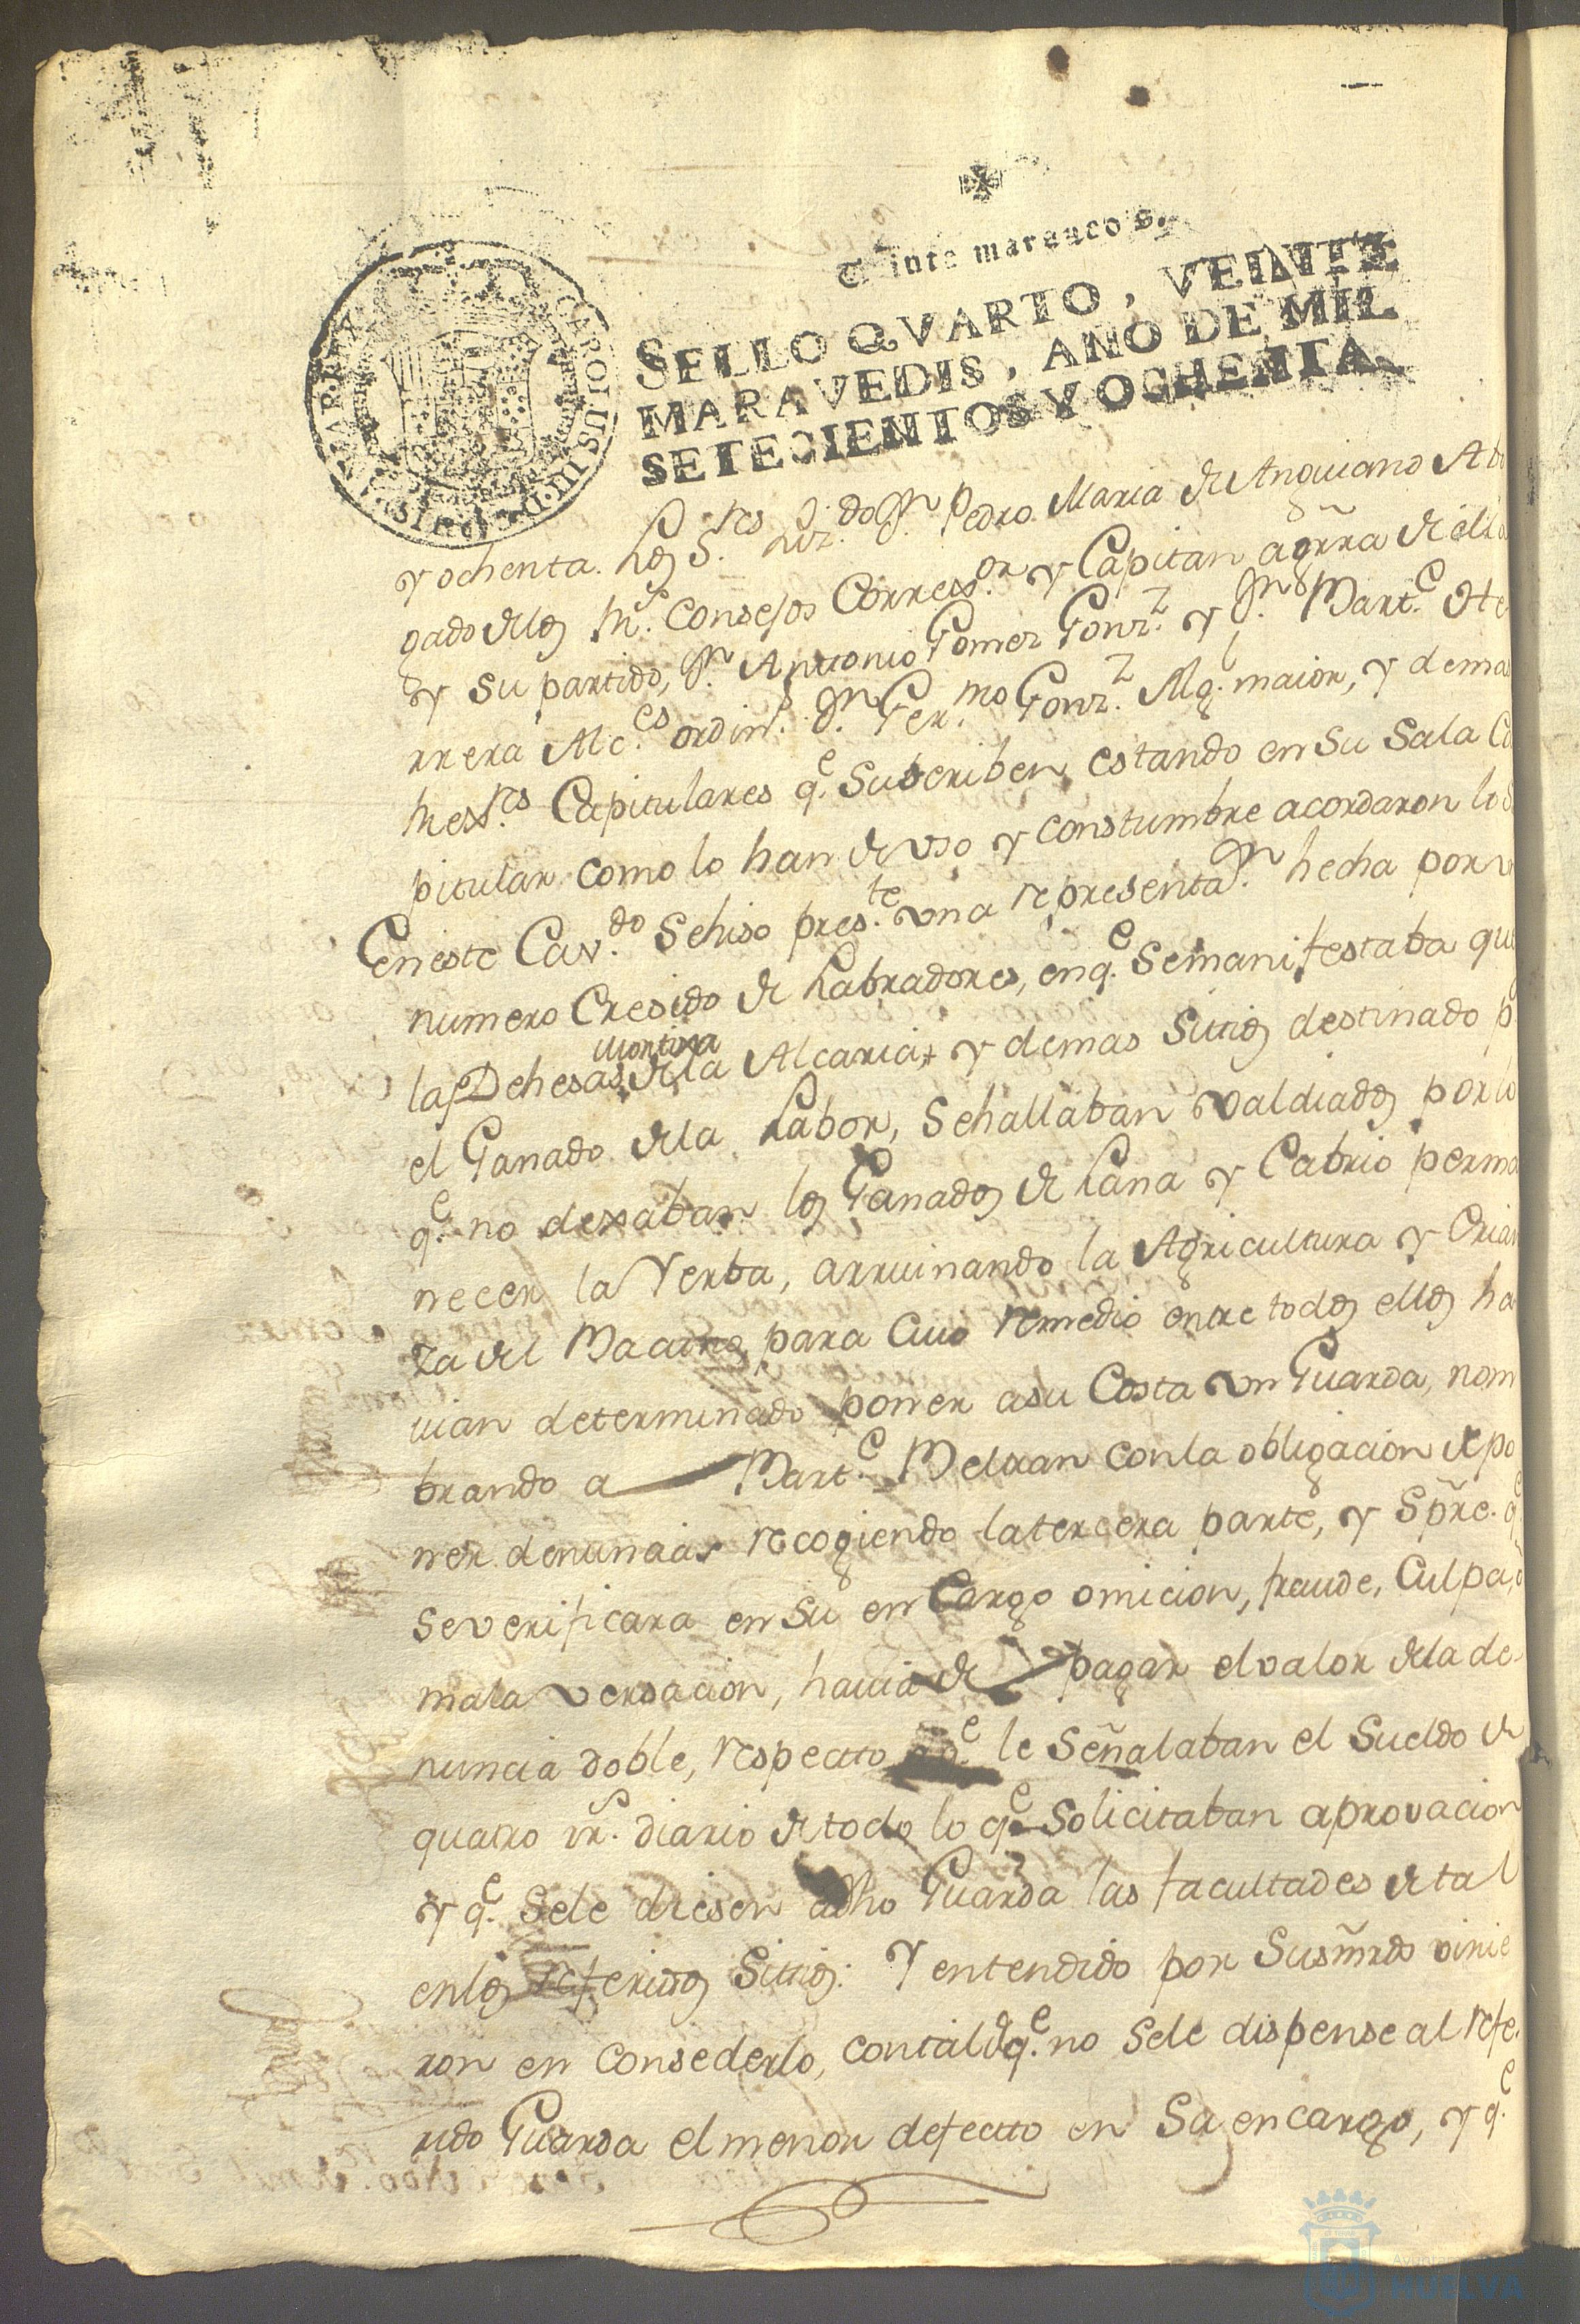 inte marauedis.
SELLO QVARTO, VEINTE
MARAVEDIS, AÑO DE MIL
SETECIENTOS Y OCHENTA.
CAROLUS III D G HISPANIAR REX
y ochenta. Los S.res Liz.do Dn. Pedro Maria de Anguiano Abo
gado de los Rs. Consejos Correxor. y Capitan agrra de ella
y su partido, Dn. Antonio Gomez Gonz.z y Dn. Bart.e He
rrera Alc.es ordins. Dn. Ger.mo Gonz.z Alg. maior, y demas
Capitulares q.e Subscriben, estando en Su Sala Ca
pitular como lo han de uso y constumbre acordaron lo S
En este Cav.do Sehiso pres.te una representan. hecha por u
numero Cresido de Labradores, enq.e Semanifestaba que
las Dehesas dela Alcaria, y demas Sitios destinado p
el Ganado dela Labor, Sehallaban Valdiados por lo
q.e no dexaban los Ganados de Lana y Cabrio perma
necer la Yerba, arruinando la Agricultura y Crian
za del Bacuno, para Cuio remedio entre todos ellos ha
vian determinado poner asu Costa un Guarda, nom
brando a Bart.e Beltran conla obligacion de po
ner denuncias recogiendo latercera parte, y Spre. q.e
severificara en Su en Cargo omicion, fraude, Culpa, o
mala versacion, havia de pagar elvalor dela de
nuncia doble, respecto a q.e le Señalaban el Sueldo de
quatro rs. diario de todo lo q.e Solicitaban aprovacion
y q.e Sele diesen adho Guarda las facultades de tal
enlos referidos Sitios: Y entendido por Susmrds vinie
ron en Consederlo, contal de q.e no Sele dispense al refe
rido Guarda elmenor defecto en Su encargo, y q.e
HUELVA